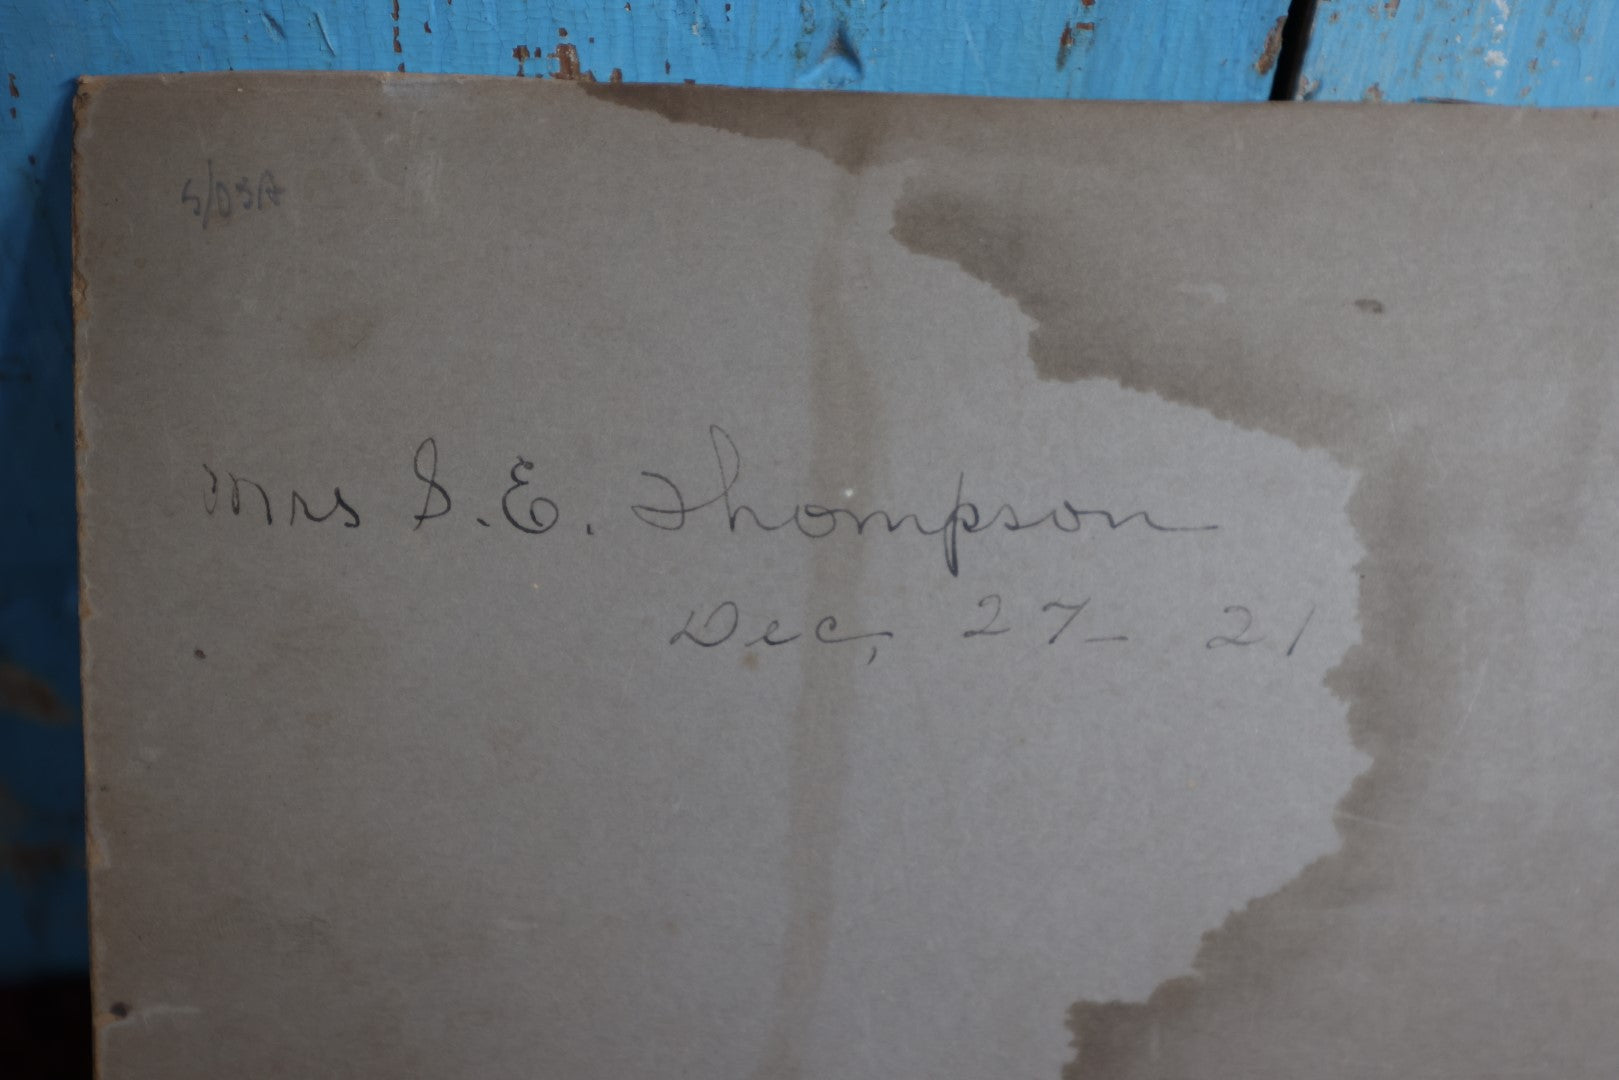 Mrs S. E. Thompson
Dec, 27- 21